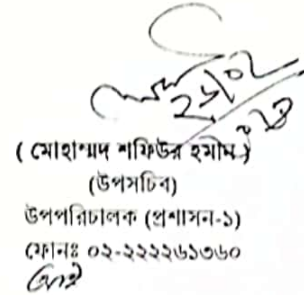 ( মোহাম্মদ শাফিউর হমীম )
(উপসচিব)
উপপরিচালক (প্রশাসন-১)
ফোনঃ ০২-২২২২৬১৩৬০